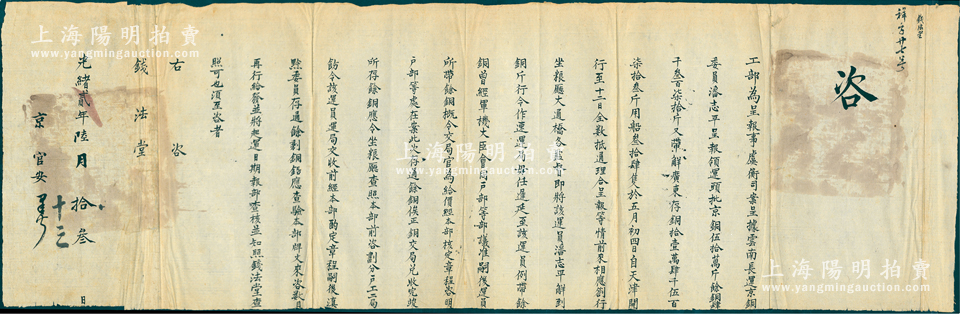 錢法堂
祥字廿七号
咨
工部為呈報事虞衡司案呈據雲南長運京銅
委員潘志平呈報領運頭批京銅伍拾萬斤餘銅肆
千叁百柒拾斤又帶解廣東存銅拾壹萬肆千伍百
柒拾叁斤用船叁拾肆隻於五月初四日自天津開
行至十二日全數抵通理合呈報等情前來相應劄行
坐粮廳大通橋各監督即將該運員潘志平解到
銅斤行令作速運局毋任遲延至該運員例帶餘
銅曾經軍機大臣會同戶部等部議准嗣後運員
所帶餘銅概令交局官為給價經本部核定章程咨明
戶部等處在案此次存通餘銅俟正銅交局兌收完竣
所得餘銅應令坐粮廳查照本部前咨劃分戶工二局
飭令該運員運局交收前經本部酌定章程嗣後滇
黔委員存通餘剩銅鉛應查驗本部牌文來咨數目
再行給發並將起運日期報部查核並知照錢法堂查
照可也須至咨者
右咨
錢法堂
光緒貳年陸月拾叁日
十三
京官安
上海陽明拍賣
www.yangmingauction.com
上海陽明拍賣
www.yangmingauction.com
上海陽明拍賣
www.yangmingauction.com
上海陽明拍賣
www.yangmingauction.com
上海陽明拍賣
www.yangmingauction.com